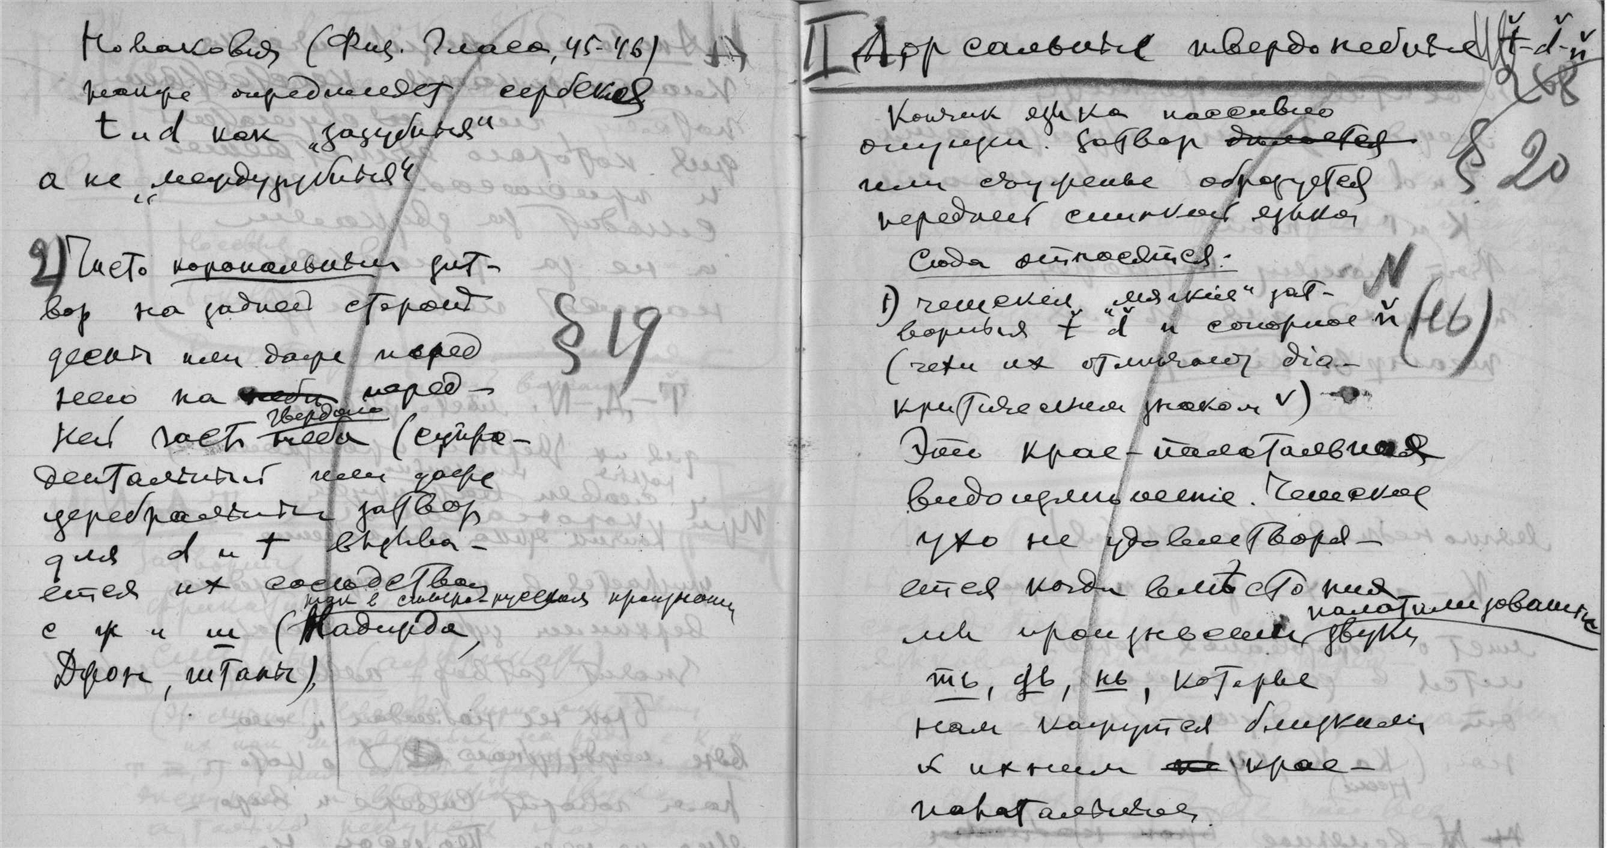 Новаковия (Физ. Гласа, 45-46)
тоже определяет сербския
t и d как „зазубныя“
а не „междузубныя“
2) Чисто корональный зат-
вор на задней стороне
десны или даже перед
нею на неби перед-
твердаго
ней части неба (супра-
дентальный или даже
церебральный затвор
для d и t вызыва-
ется их соседством
как в северо-русском произнош.
с ж и ш (Надежда,
Джон, штаны).
§ 19
II Дорсальные твердонебные t̆-d̆-n̆
268
§ 20
Кончик языка пассивно
опущен. Затвор делается
или съуженье образуется
передней спинкой языка
Сюда относятся:
N
1) чешския „мягкия“ зат-
ворныя t̆ d̆ и сонорное n̆ (нь)
(чехи их отличают dia-
критическим знаком v)
Это крае-палатальная
видоизмененiе. Чешское
ухо не удовлетворя-
ется когда вместо них
палатализованные
мы произносим звуки
ть, дь, нь, которые
нам кажутся близкими
к ихним крае-
палатальным.